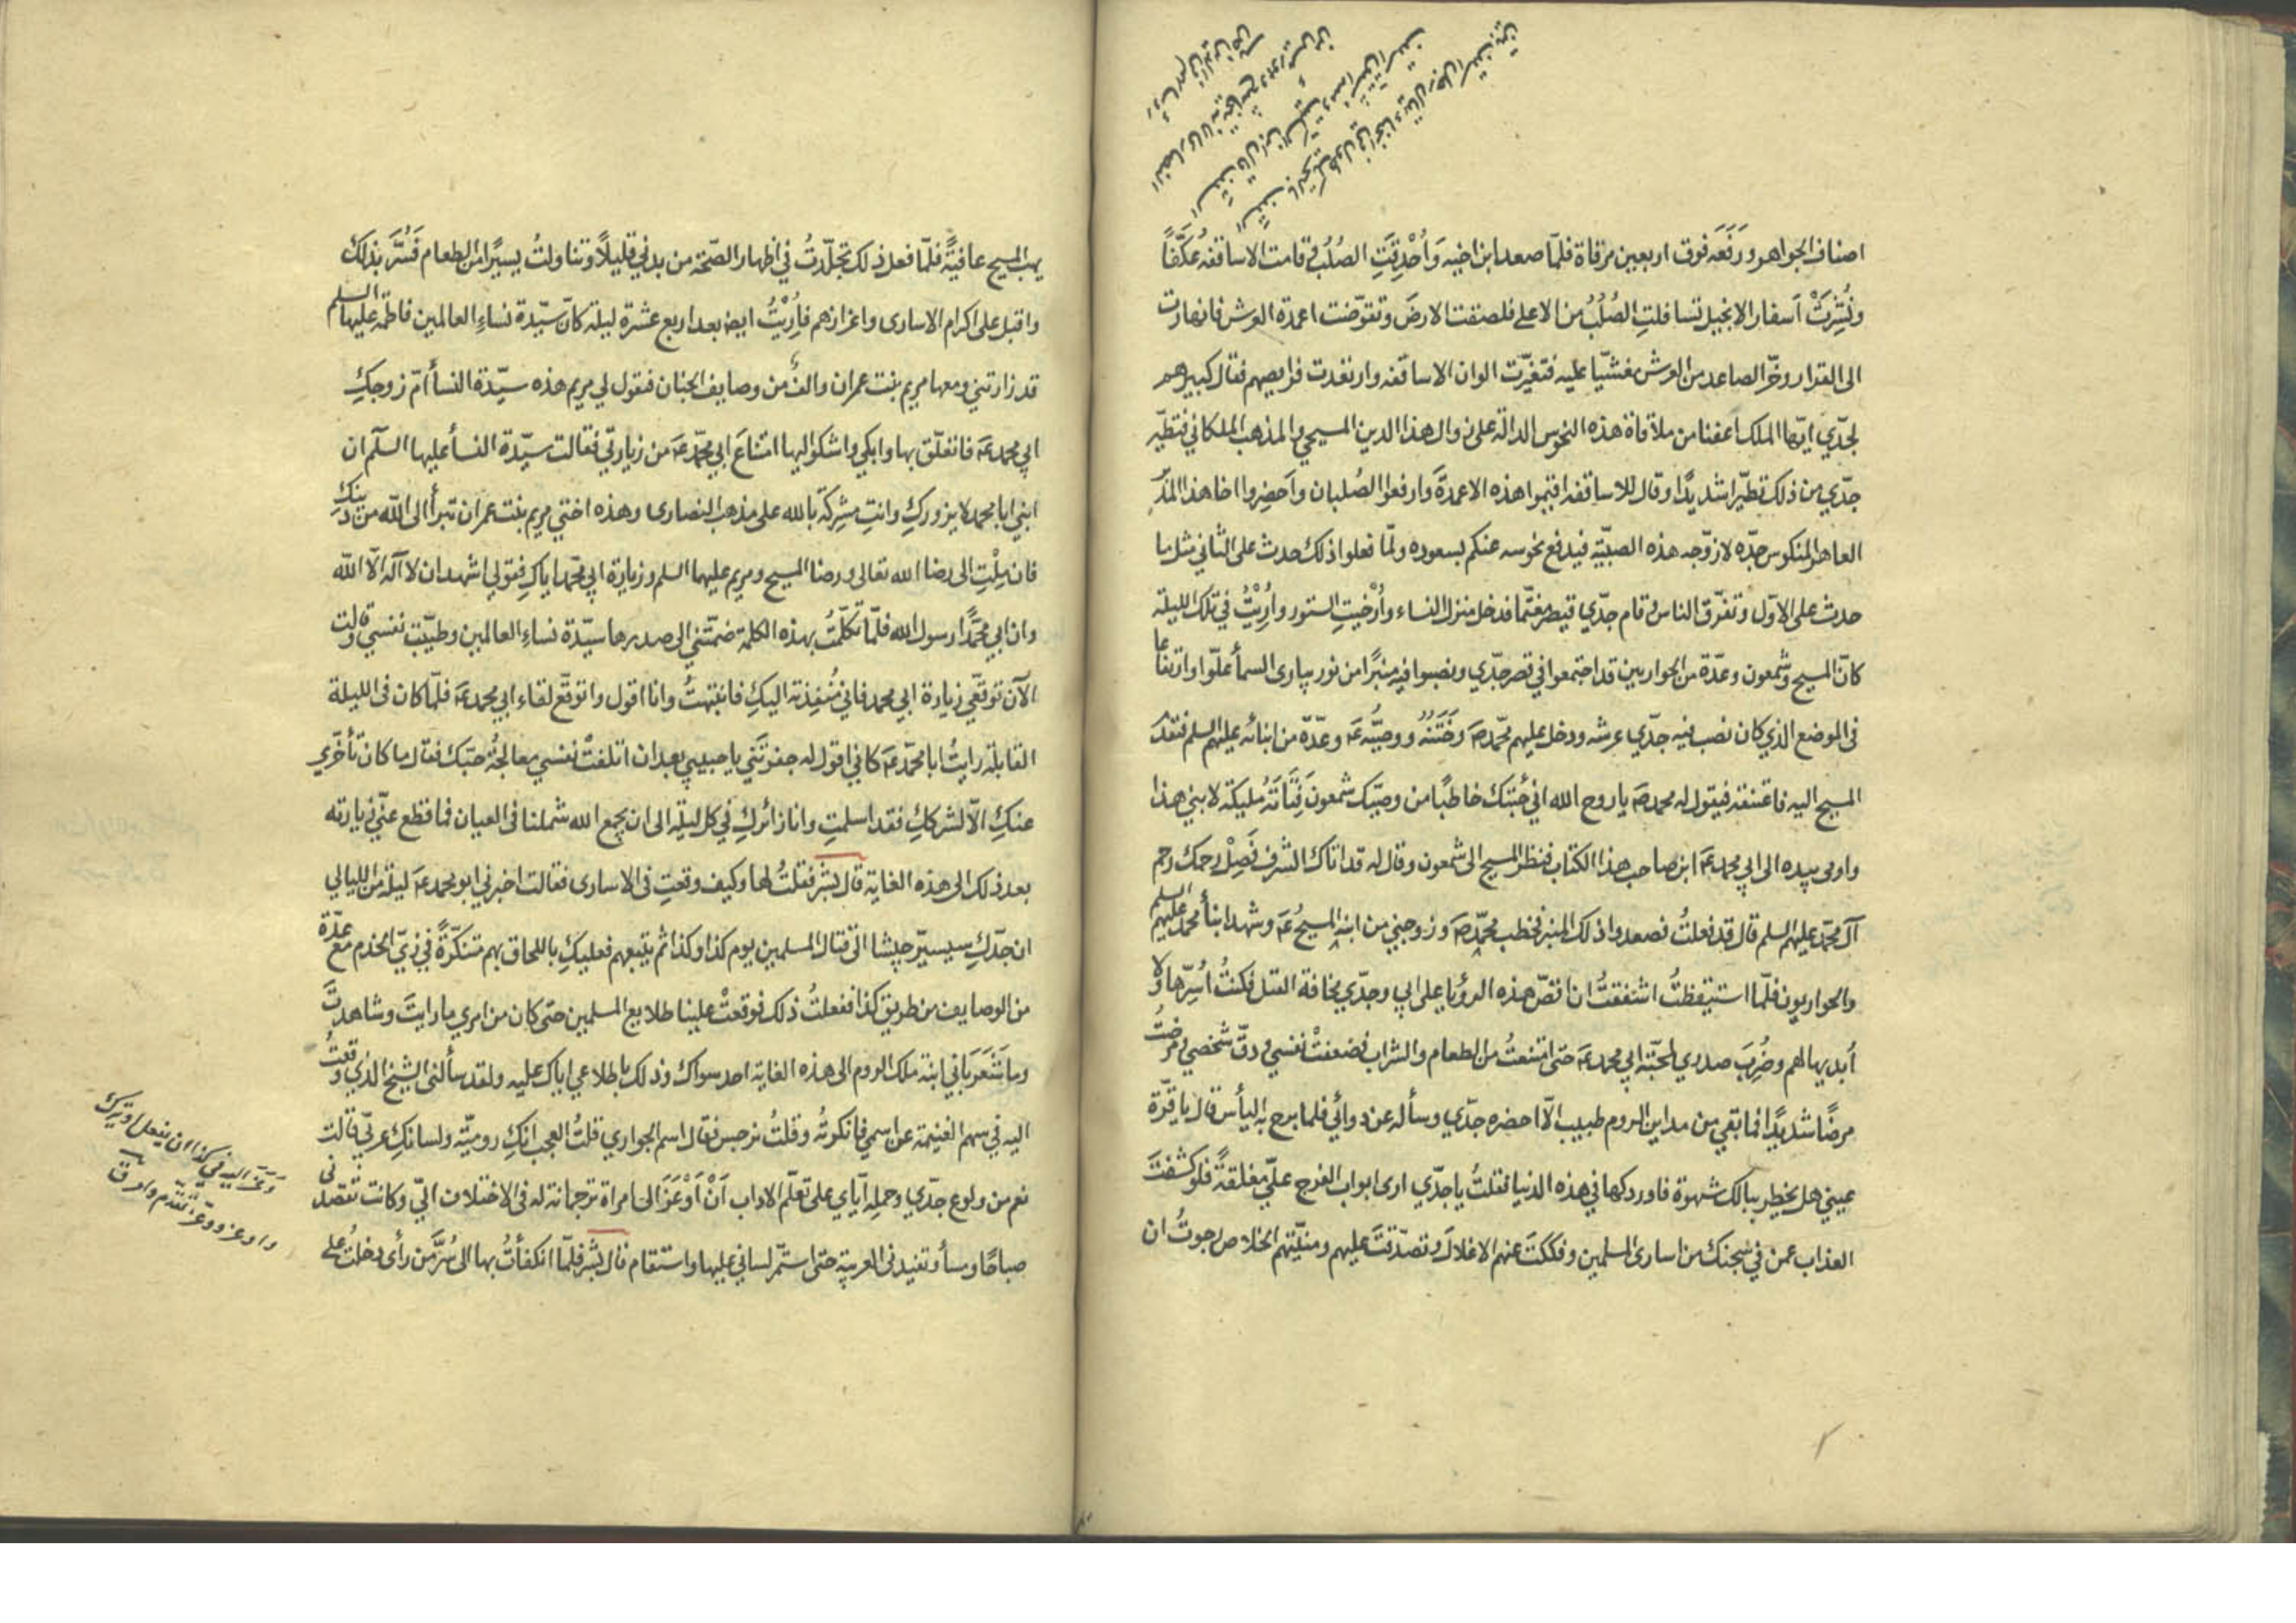 اصناف الجواهر ورَفَعَه فوق اربعين مرقاة فلمّا صعد ابن اخيه وَاُحْدِقَتِ الصُلُبُ و قامت الاساقفه عُكَّفًا
ونُشِرَتْ اَسفار الانجيل تسافلتِ الصُلُبُ من الاعلى فلصقت الارضَ وتقوّضت اعمدة العرش فانهارت
الى القرار وخرّ الصاعد من العرش مغشيّا عليه فتغيّرت الوان الاساقفه وارتعدت فرايصهم فقال كبيرهم
لجدّي ايّها الملك اعفنا من ملاقاة هذه النحوس الدالّة على زوال هذا الدين المسيحي والمذهب الملكاني فتطيّر
جدّي من ذلك تطيّرا شديدًا وقال للاساقفه اقيموا هذه الاعمدةَ وارفعوا الصُلبان واَحضِروا اخا هذا المُدْبِر
العاهر المنكوس جدّه لازوّجه هذه الصبيّة فيدفع نحوسه عنكم بسعوده ولمّا فعلوا ذلك حدث على الثاني مثل ما
حدث على الاوّل وتفرّق الناس وقام جدّي قيصر مغتمّا فدخل منزل النساء واُرْخيتِ الستور واُرِيْتُ في تلك الليلة
كانّ المسيح وشمعون وعدّة من الحواريين قد اجتمعوا في قصر جدّي ونصبوا فيه منبرًا من نور يبارى السمأ علوّا وارتفاعا
فى الموضع الذي كان نصب فيه جدّي عرشه ودخل عليهم محمّد صَ وخَتَنُهُ ووصيُّه عَ وعدّة من ابنائه عليهم السلم فتقدّم
المسيح اليه فاعتنقه فيقول له محمد صَ ياروح الله اني جئتك خاطبًا من وصيّك شمعون فَتَاتَهُ مليكة لابني هذا
واومى بيده الى ابي محمد عَ ابن صاحب هذا الكتاب فنظر المسيح الى شمعون وقال له قد اتاك الشرف فَصِلْ رحمك رحم
آل محمّد عليهم السلم قال قد فعلتُ فصعدوا ذلك المنبر فخطب محمّد صَ وزوجني من ابنه وشهد المسيحُ عَ وشهد ابنأ محمد عليهم السلم
والحواريون فلمّا استيقظتُ اشفقتُ ان اقصّ هذه الرؤيا على ابي وجدّي مخافة القتل فكنتُ اُسِرّها ولا
اُبديها لهم وضُرِبَ صدري لمحبّة ابي محمد عَ حتى امتنعتُ من الطعام والشراب فضعفتْ نفسي ودقّ شخصي ومرضتُ
مرضًا شديدًا فما بقي من مداين الروم طبيب الّا احضره جدّي وسأله عن دوائي فلما برح به اليأس قال يا قرّة
عيني هل يخطر ببالك شهوة فاوردكها في هذه الدنيا فقلتُ يا جدّي ارى ابواب الفرج عليّ مغلقةً فلو كشفتَ
العذاب عمن في سجنك من اسارى المسلمين وفككتَ عنهم الاغلال وتصدّقتَ عليهم ومنّيتهم الخلاص رجوتُ ان
يهب المسيح عافيةً فلمّا فعل ذلك تجلّدتُ في اظهار الصحّة من بدني قليلًا وتناولتُ يسيرًا من الطعام فَسُرَّ بذلك
واقبل على اكرام الاسارى واعزازهم فاُرِيْتُ ايضً بعد اربع عشرة ليلة كانّ سيّدة نساءِ العالمين فاطمة عليها السلم
قد زارتني ومعها مريم بنت عمران والفٌ من وصايف الجنان فتقول لي مريم هذه سيّدة النسأ امّ زوجكِ
ابي محمد عَ فاتعلّق بها وابكي واشكو اليها امتناعَ ابي محمّد عَ من زيارتي فقالت سيّدة النسأ عليها السلم ان
ابني ابا محمد لا يزوركِ وانتِ مشركة بالله على مذهب النصارى وهذه اختي مريم بنت عمران تبرأ الى الله من دينكِ
فان مِلْتِ الى رضا الله تعالى ورضا المسيح ومريم عليهما السلم وزيارة ابي محمّد اياكِ فقولي اشهد ان لا آله الّا الله
وان ابي محمَّدًا رسول الله فلمّا تكلّمتُ بهذه الكلمة ضمّتني الى صدرها سيّدة نساءِ العالمين وطيّبت نفسي وقالت
الآن توقّعي زيارة ابي محمد فاني مُنْفِذته اليكِ فانتبهتُ وانا اقول واتوقّع لقاء ابي محمد عَ فلمّا كان فى الليلة
القابلة رايتُ ابا محمّد عَ كاني اقول له جفوتَني يا حبيبي بعد ان اتلفتُ نفسي معالجةُ حبّك فقال ما كان تأخّري
عنكِ الّا لشركِكِ فقد اسلمتِ وانا زائركِ في كل ليلة الى ان يجمع الله شملنا فى العيان فما قطع عنّي زيارته
بعد ذلك الى هذه الغاية قال بشر فقلتُ لها وكيف وقعتِ فى الاسارى فقالت اخبرني ابو محمد عَ ليلة من الليالي
ان جدّكِ سيسيّر جيشا الى قتال المسلمين يوم كذا وكذا ثم يتبعهم فعليكِ باللحاق بهم متنكّرةً في زيّ الخدم مع عدّة
من الوصايف من طريق كذا ففعلتُ ذلك فوقعتْ علينا طلايع المسلمين حتى كان من امري ما رايتَ وشاهدتَ
وما شَعَرَ باني ابنة ملك الروم الى هذه الغاية احد سواك وذلك باطلاعي اياك عليه ولقد سألنى الشيخ الذي وقعتُ
اليه في سهم الغنيمة عن اسمي فانكرتُه وقلتُ نرجس فقال اسم الجواري قلتُ العجب انكِ روميّة ولسانكِ عربيّ قالت
نعم من ولوع جدّي وحمله ايّاي على تعلّم الاداب اَنْ اَوْعَزَ الى امراة ترجمانة له فى الاختلاف اليّ وكانت تقصدني
صباحًا ومسأ وتفيدنى العربية حتى استمّر لساني عليها واستقام قال بشر فلمّا انكفأتُ بها الى سُرَّ من رأى دخلتُ على
وَعَزَ اليه في كذا ان يفعل او يترك
واوعز ووعّز تقدّم وامر ق